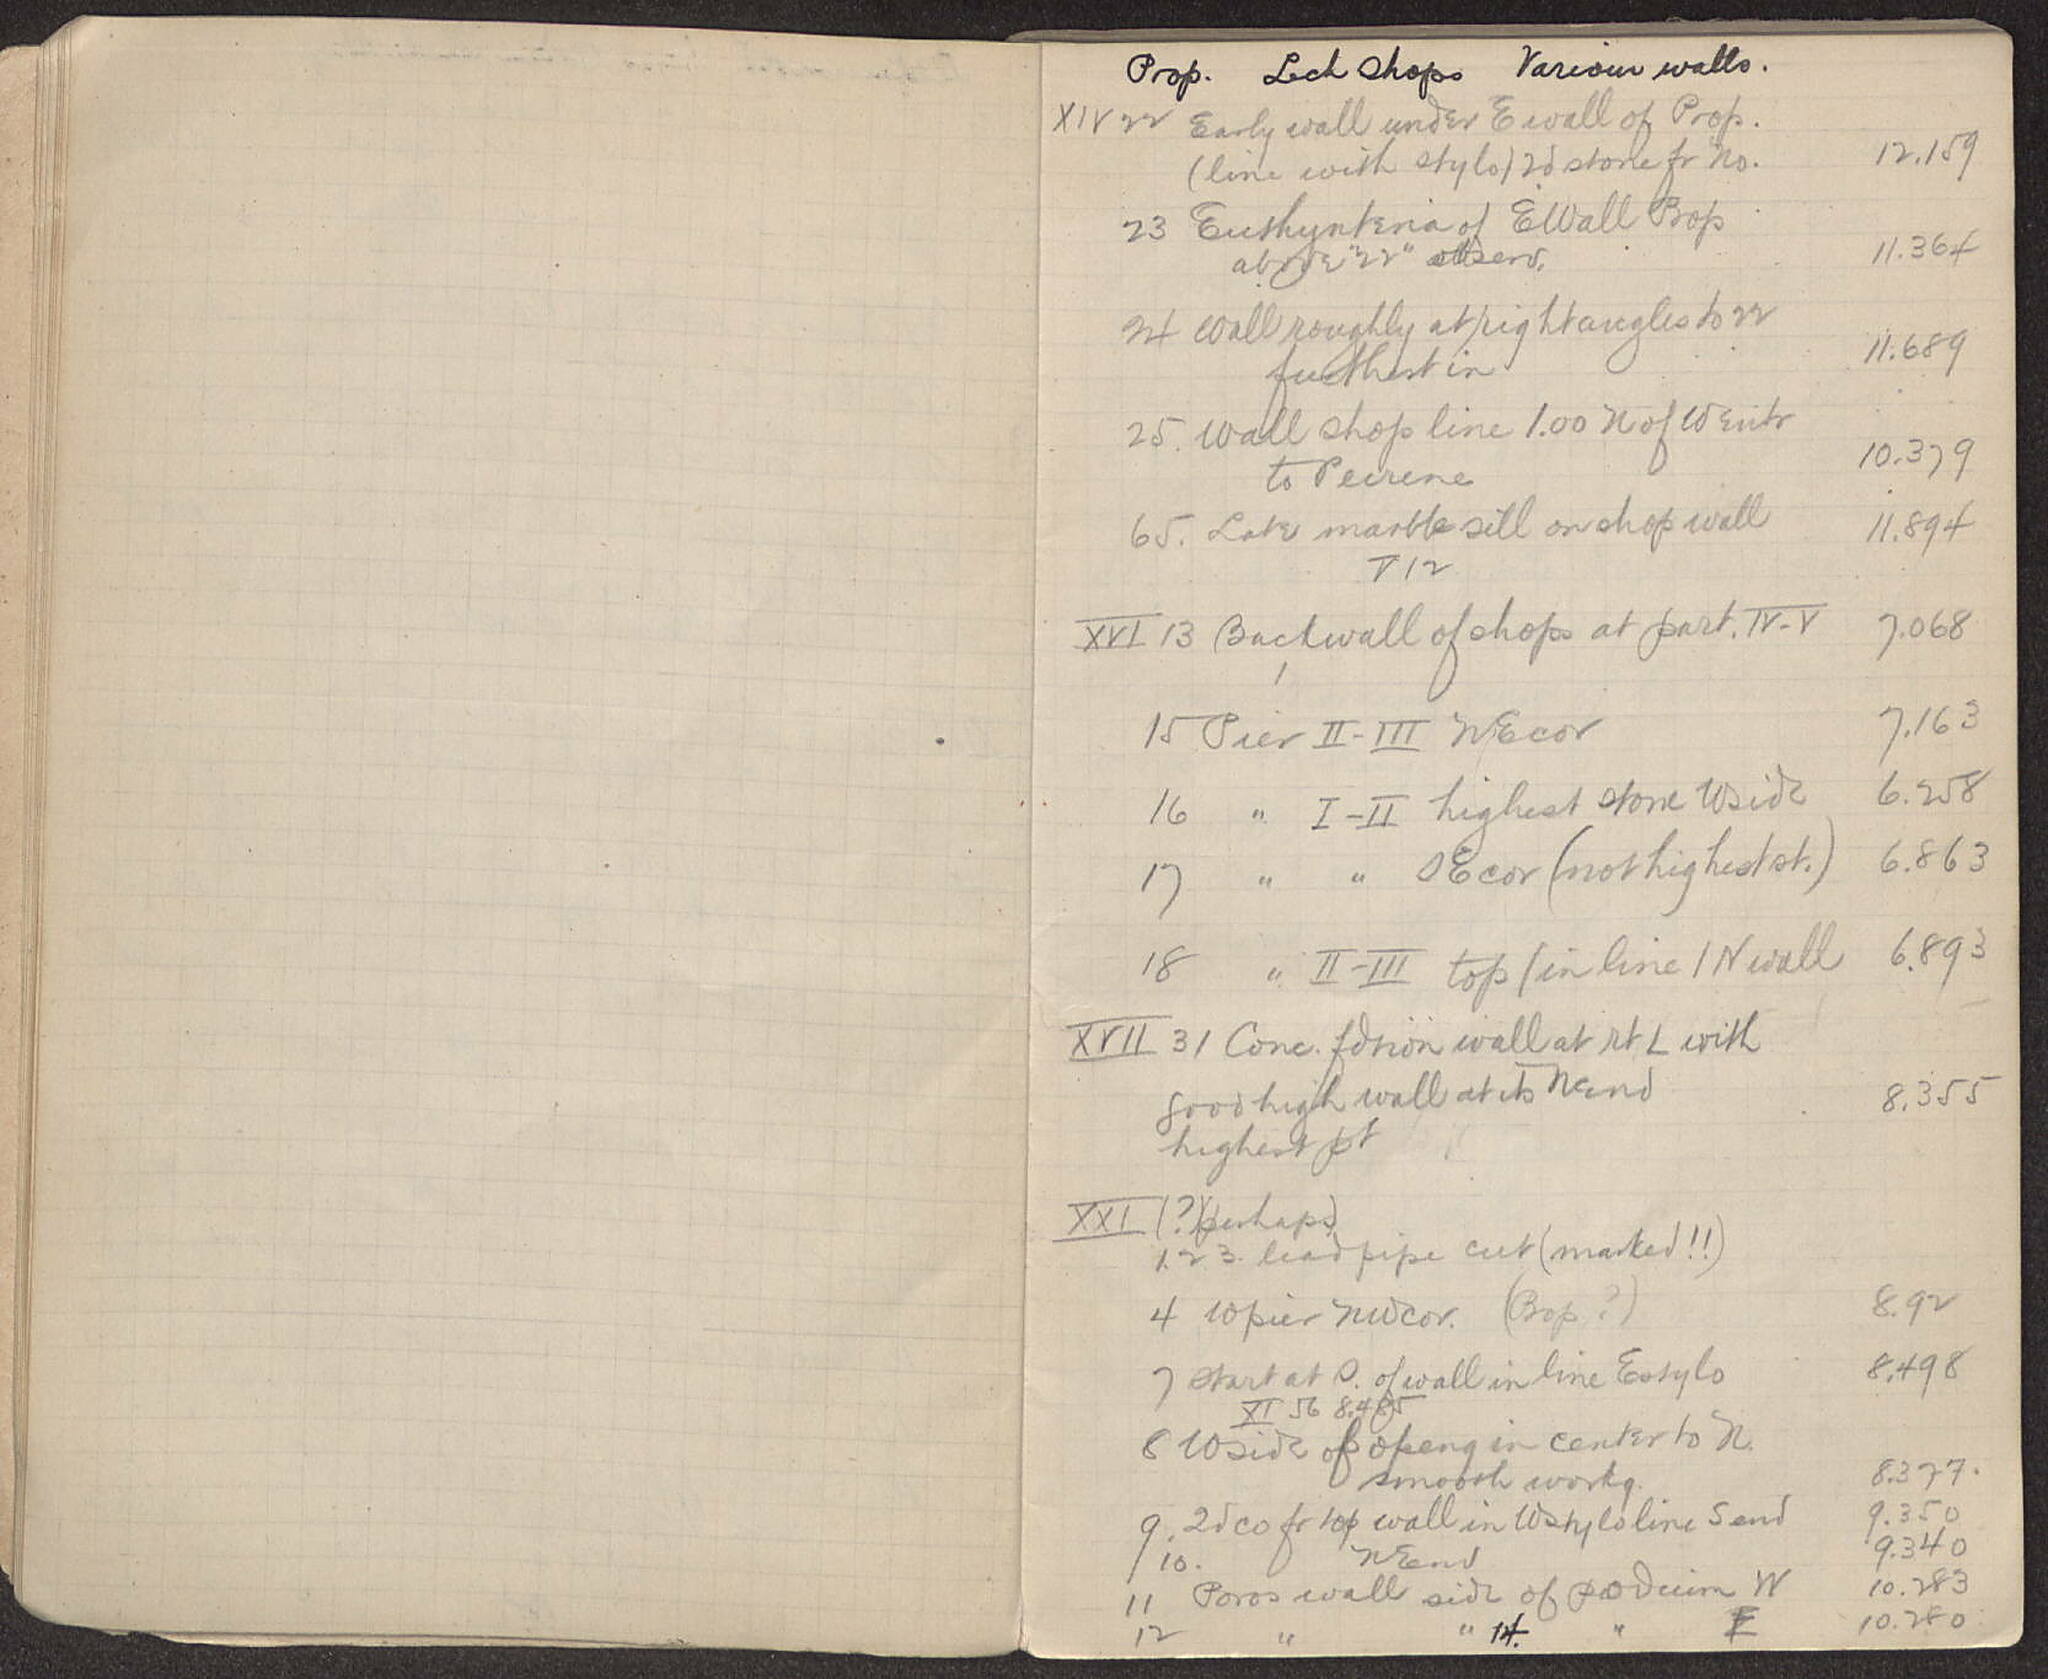 Prop. Lech Shops Various walls.
XIV 22 Early wall under E wall of Prop.
(line with stylo) 2d stone fr No. 12.159
23 Euthynteria of E Wall Prop
above "22" observ. 11.364
24 Wall roughly at right angles to 22
furthest in 11.689
25. Wall shop line 1.00 N of W entr
to Peirene 10.379
65. Late marble sill on shop wall 11.894
V 12
XVI 13 Back wall of shops at part. IV-V 7.068
15 Pier II-III NE cor 7.163
16 " I-II highest stone W side 6.258
17 " " SE cor (not highest st.) 6.863
18 " II-III top (in line / N wall 6.893
XVII 31 Conc. fdtion wall at rt L with
good high wall at its N end 8.355
highest pt
XXI (?)(perhaps)
1.2 3. lead pipe cut (marked!!)
4 W pier NW cor. (Prop?) 8.92
7 Start at S. of wall in line E stylo 8.498
XI 56 8.485
8 W side of openg in center to N.
smooth workg. 8.377.
9. 2d co fr top wall in W stylo line S end 9.350
10. N End 9.340
11 Poros wall side of podium W 10.283
12 " " 14. " E 10.280